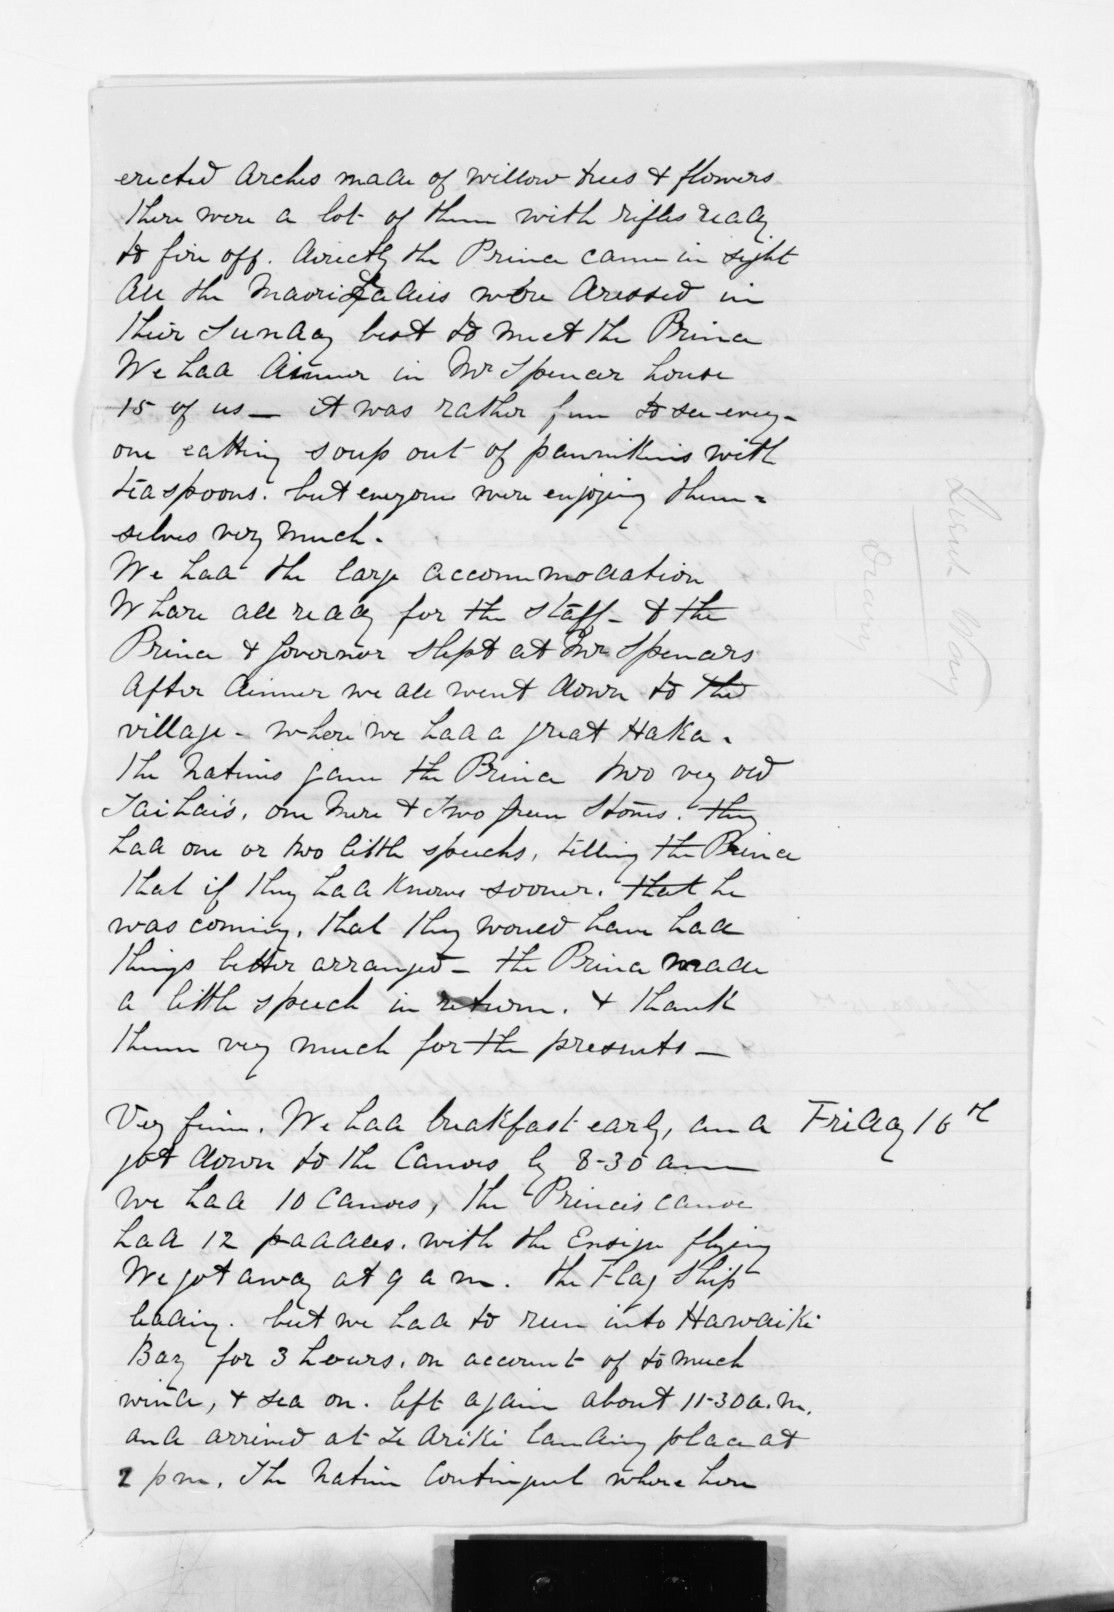 erected Arches made of willow trees & flowers
there were a lot of them with rifles ready
to fire off. directly the Prince came in sight
All the Maori Ladies were dressed in
their Sunday best to meet the Prince
We had dinner in Mr Spencer house
15 of us — it was rather fun to see every-
one eatting soup out of pannikins with
teaspoons. but everyone were enjoying them=
selves very much.
We had the large accommodation
Whare all ready for the staff - & the
Prince & Governor slept at Mr Spencers
After dinner we all went down to the
village - where we had a great Haka.
The Natives gave the Prince two very old
Taihais, one Mere & Two green Stones. they
had one or two little speechs, telling the Prince
that if they had known sooner. that he
was coming, that they would have had
things better arranged - the Prince made
a little speech in return. & thank
them very much for the presents —
Very fine. We had breakfast early, and Friday 16th
got down to the Canoes by 8-30 am
we had 10 canoes, the Princes canoe
had 12 paddles. with the Ensign flying
We got away at 9 a m. the Flag Ship
leading. but we had to run into Hawaiki
Bay for 3 hours, on account of to much
wind, & sea on. left again about 11-30 a.m.
and arrived at Te Ariki landing place at
2 pm. The Native Contingent where here